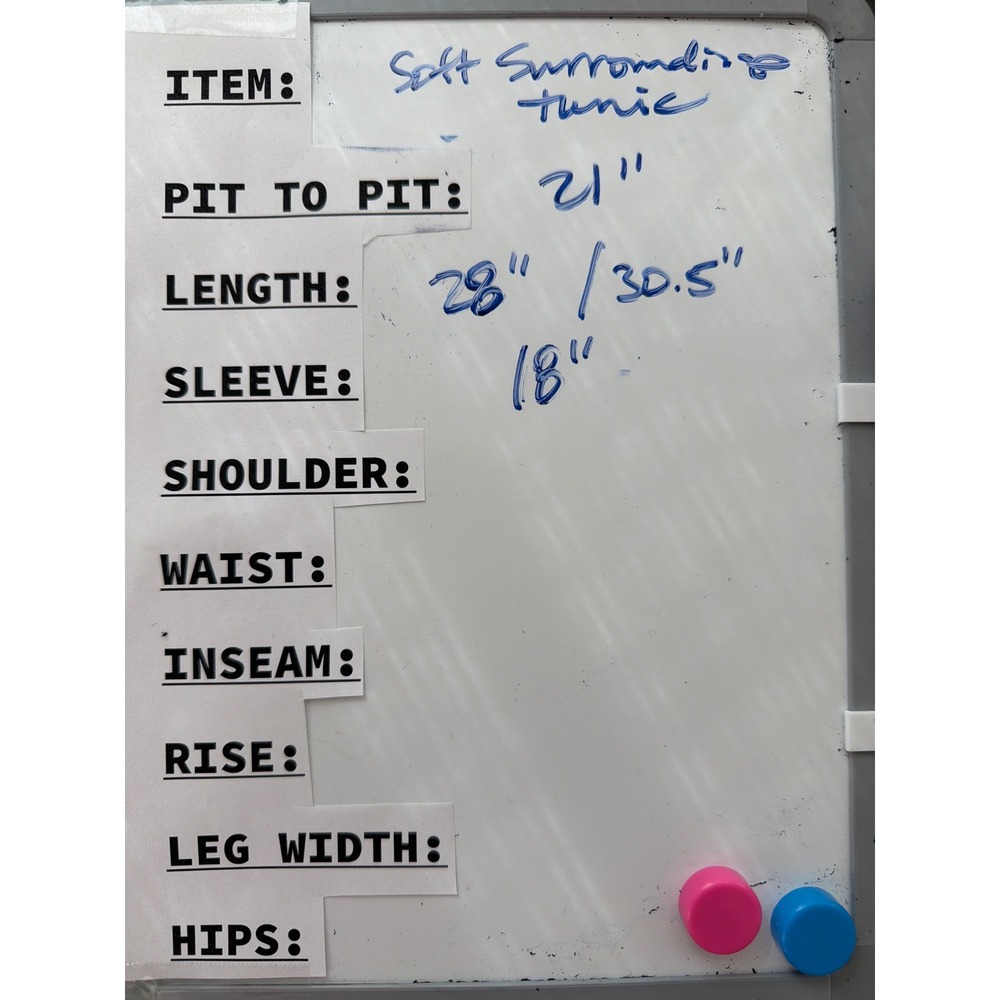 ITEM: Soft Surroundings
tunic
PIT TO PIT: 21"
LENGTH: 28" / 30.5"
SLEEVE: 18"
SHOULDER:
WAIST:
INSEAM:
RISE:
LEG WIDTH:
HIPS: